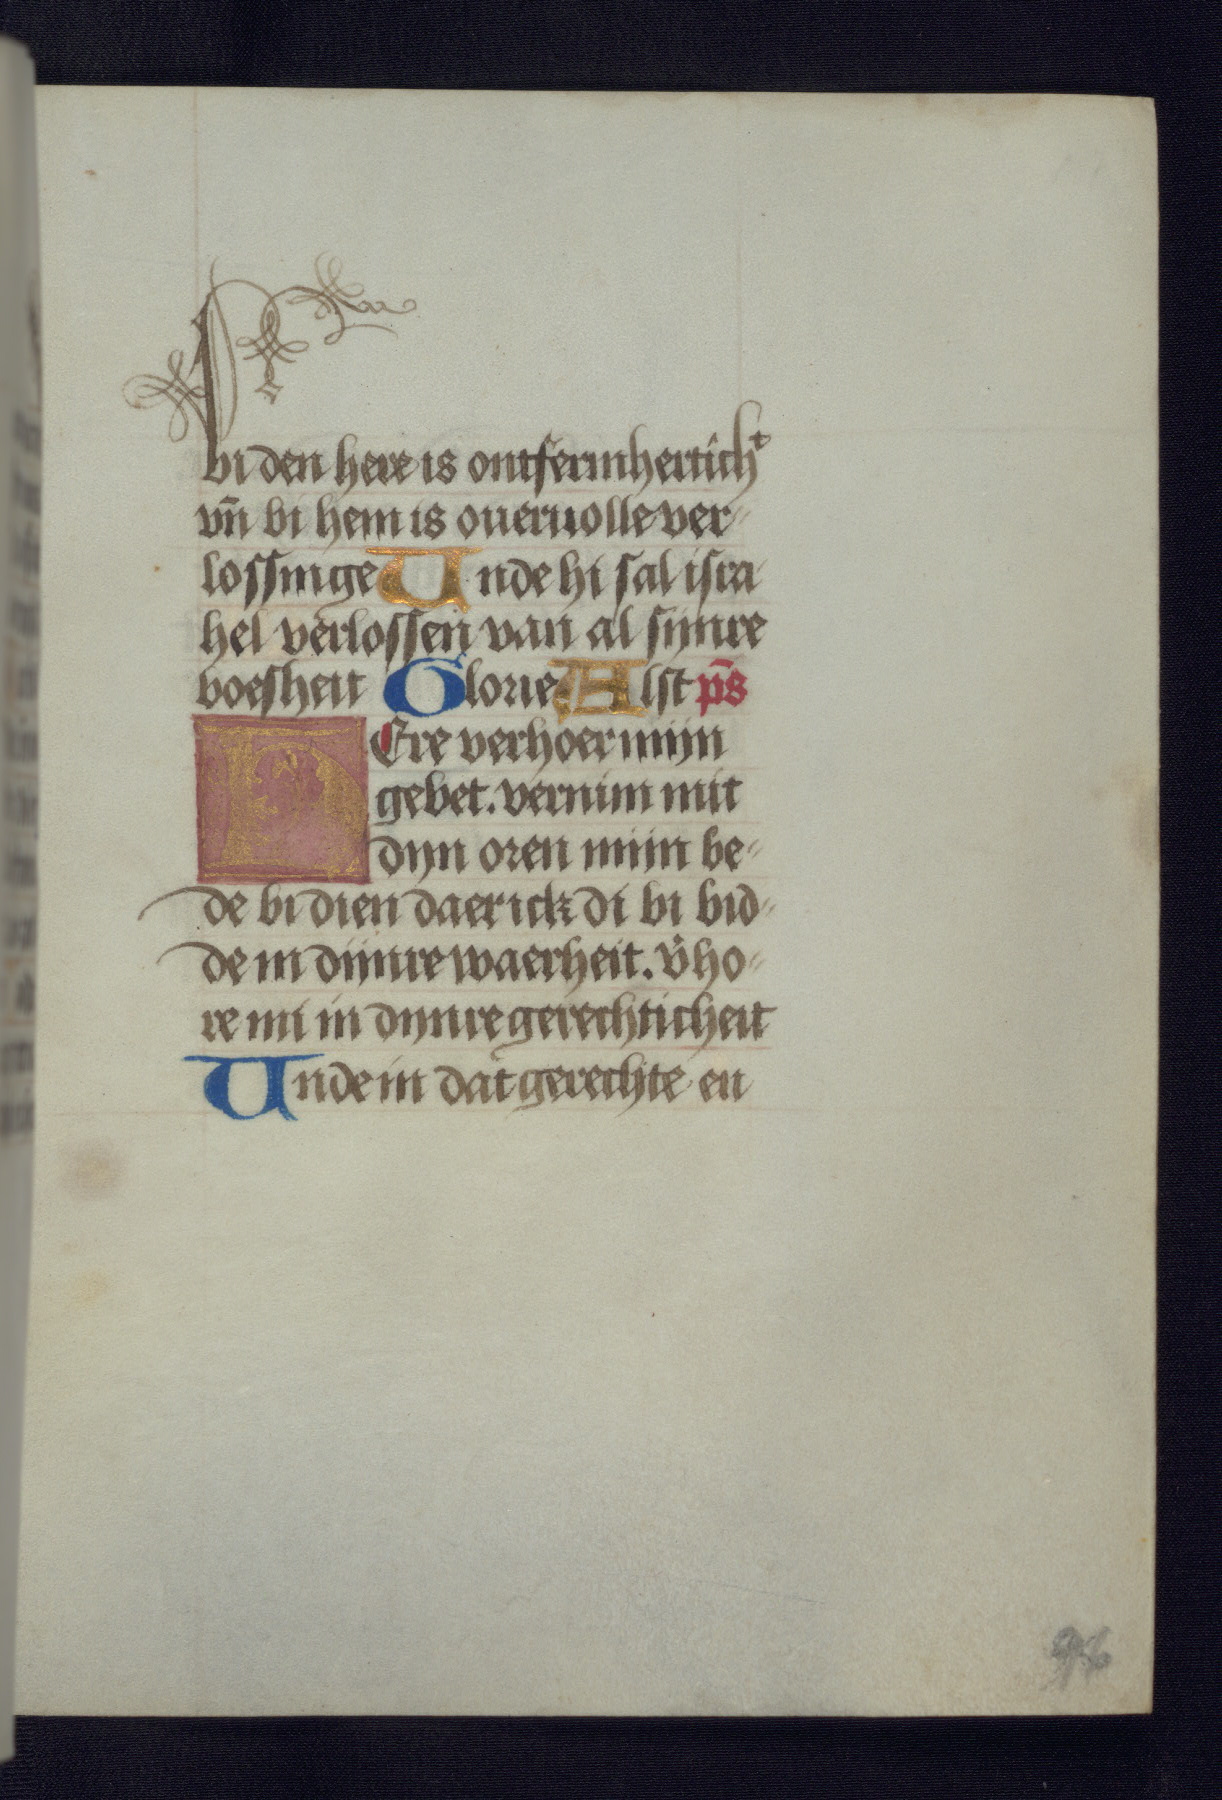 bi den here is ontfermherticht
vn̄ bi hem is oueruolle ver-
lossinge Unde hi sal isra-
hel verlossen van al sijnre
boesheit Glorie Alst ps̄
HEre verhoer mijn
gebet. vernim mit
dijn oren mijn be-
de bi dien daer ick di bi bid-
de in dijnre waerheit. v̄ho-
re mi in dijnre gerechticheit
Unde in dat gerechte en